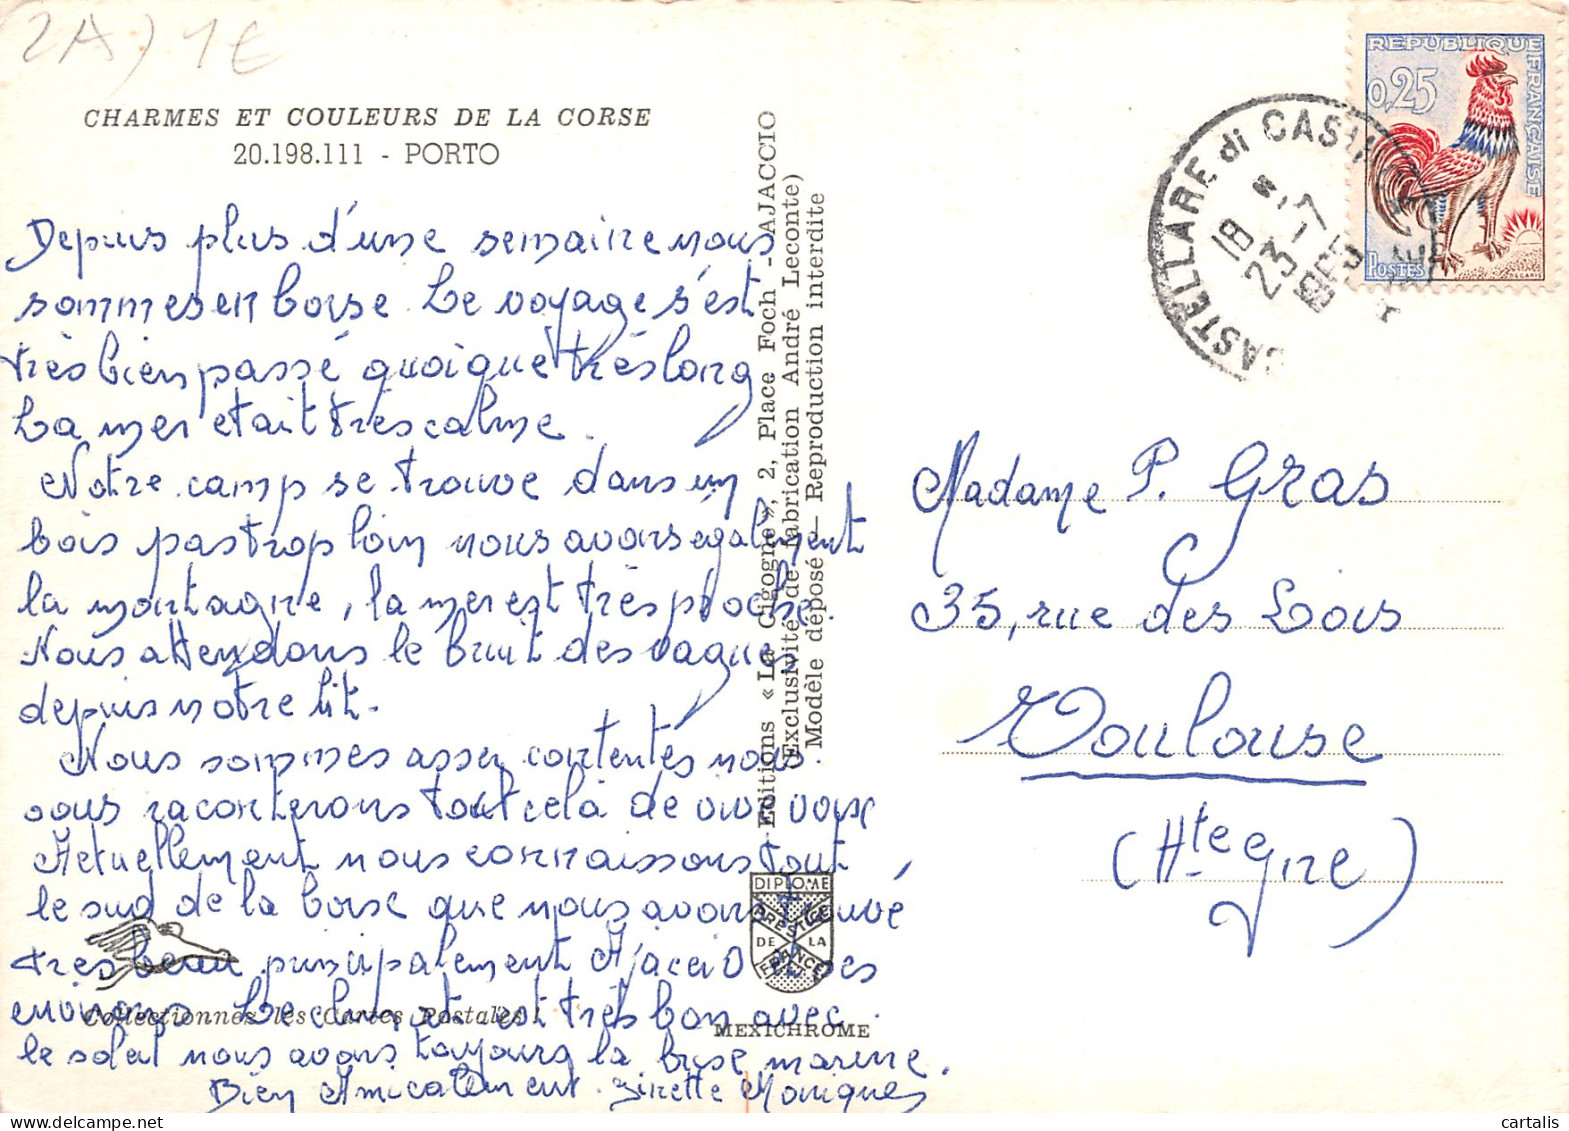 2A) 1€
CHARMES ET COULEURS DE LA CORSE
20.198.111 - PORTO
Depuis plus d'une semaine nous
sommes en Corse Le voyage s'est
très bien passé quoique très long
La mer etait tres calme.
Notre camp se trouve dans un
bois pas trop loin nous avons également
la montagne, la mer est très proche
Nous attendons le bruit des vagues
depuis notre lit.
Nous sommes assez contentes nous
vous raconterons tout cela de vive voix
Actuellement nous connaissons tout
le sud de la Corse que nous avons trouvé
très beau principalement Ajaccio ses
environs Le climat est très bon avec
le soleil nous avons toujours la brise marine.
Bien Amicalement. Ginette Monique
Collectionnez les Cartes Postales !
Editions « La Cigogne », 2, Place Foch - AJACCIO
(Exclusivité de fabrication André Leconte)
Modèle déposé — Reproduction interdite
DIPLOME
PRESTIGE
DE LA
FRANCE
MEXICHROME
REPUBLIQUE FRANÇAISE
0,25
POSTES
CASTELLARE di CASI
18 H
23 -7
1965
Madame P. Gras
35, rue des Lois
Toulouse
(Hte Gne)
cartalis
delcampe.net